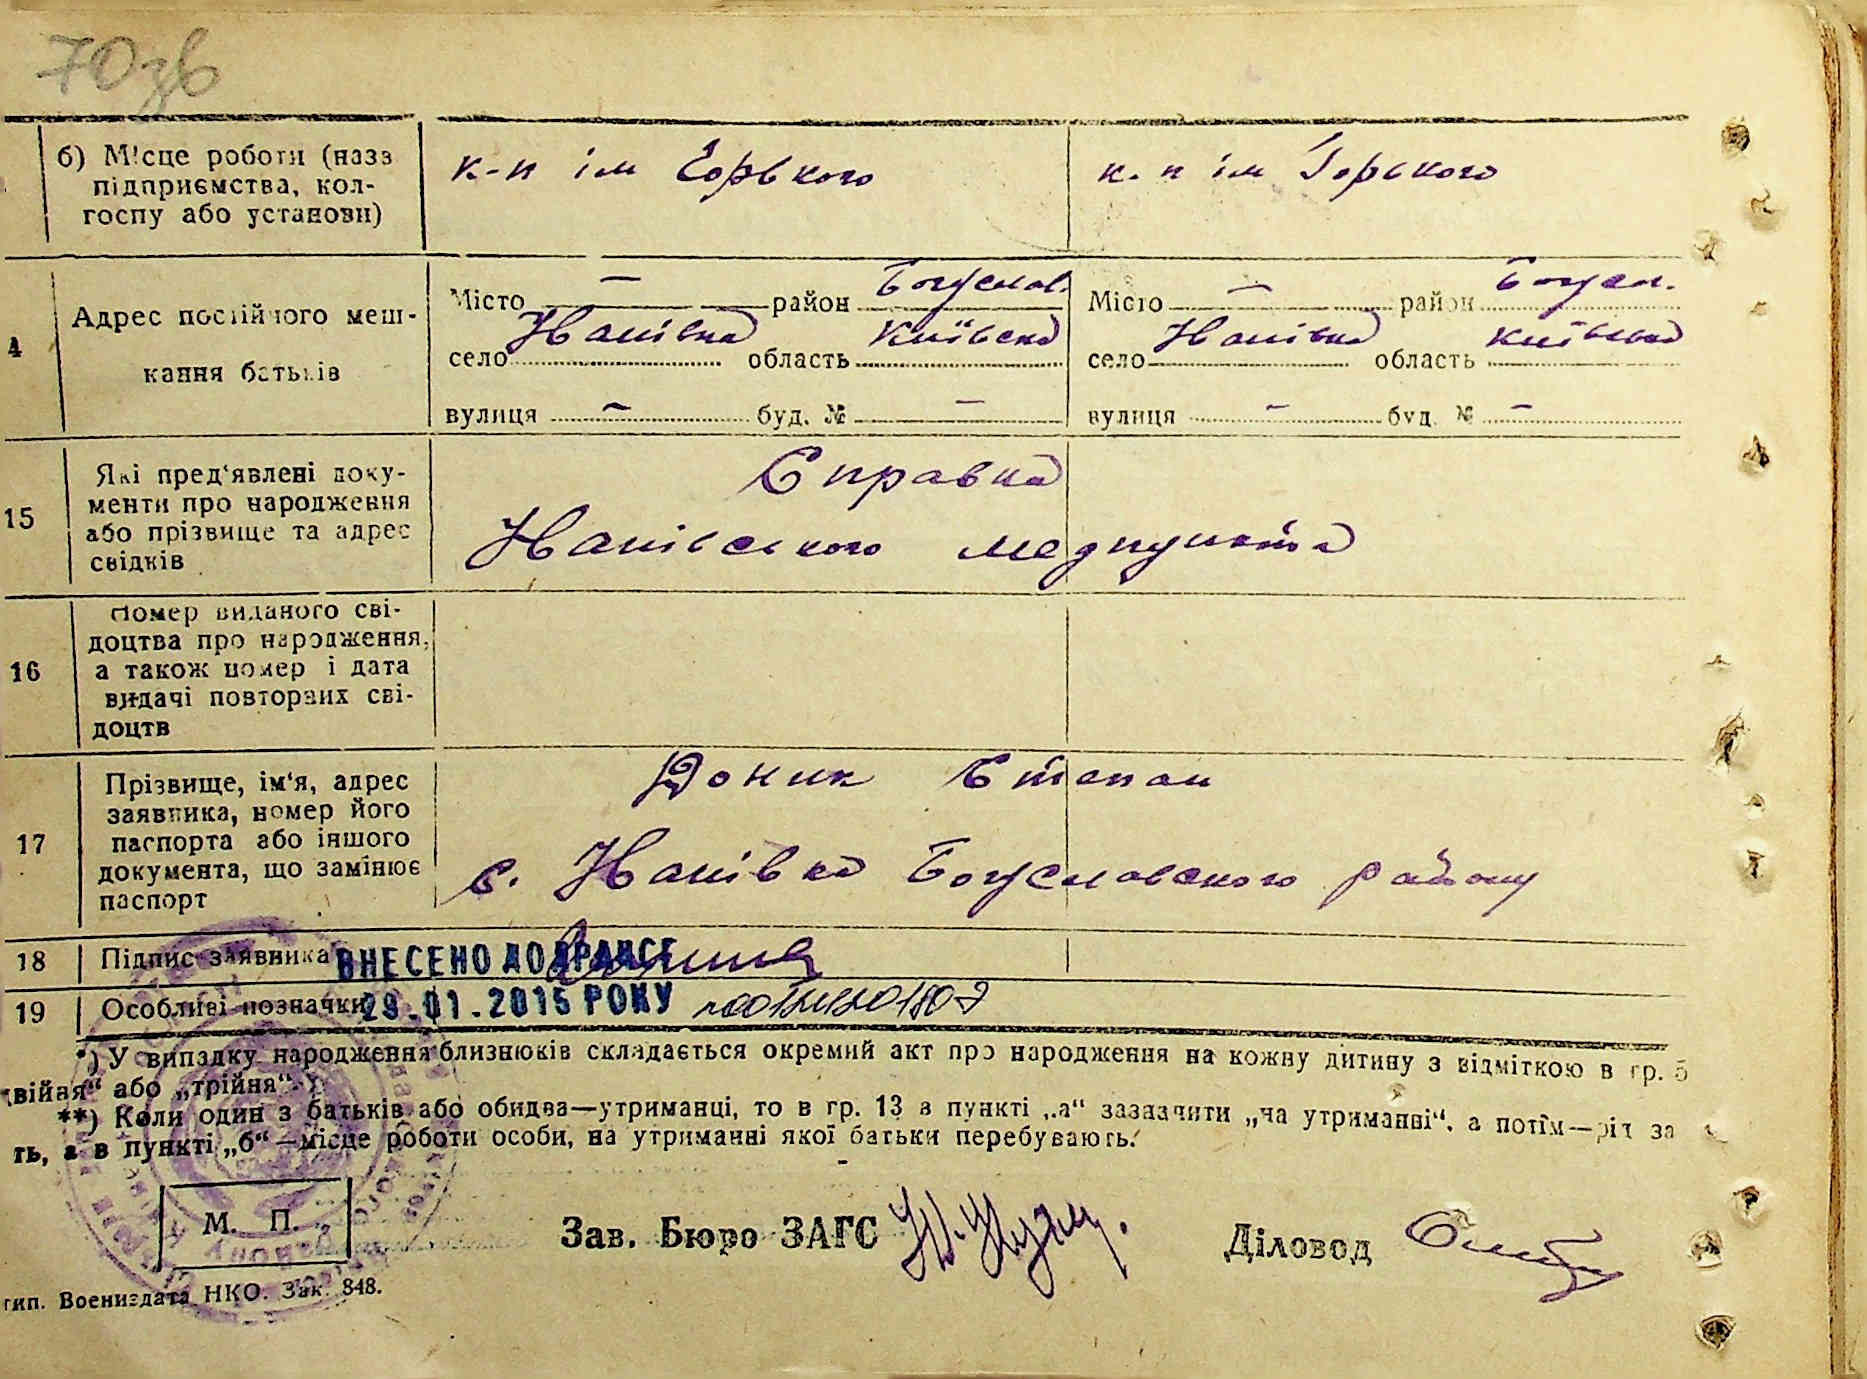 70зв
б) Місце роботи (назв
підприємства, кол-
госпу або установи)
к-п ім Горького
к. п ім Горького
4
Адрес постійного меш-
кання батьків
Місто — район Богуслав.
село Нанівка область Київска
вулиця — буд. № —
Місто — район Богусл.
село Нанівка область Київська
вулиця — буд. № —
15
Які пред'явлені доку-
менти про народження
або прізвище та адрес
свідків
Справка
Нанівського медпункта
16
Номер виданого сві-
доцтва про народження,
а також номер і дата
видачі повторних сві-
доцтв
17
Прізвище, ім'я, адрес
заявника, номер його
паспорта або іншого
документа, що замінює
паспорт
Доник Степан
с. Нанівка Богуславского району
18 Підпис заявника
ВНЕСЕНО ДО ДРАЦСГ
19 Особливі позначки
29.01.2015 РОКУ
*) У випадку народження близнюків складається окремий акт про народження на кожну дитину з відміткою в гр. 5
двійня“ або „трійня“.
**) Коли один з батьків або обидва—утриманці, то в гр. 13 в пункті „а“ зазначити „на утриманні“, а потім—рід за
ть, а в пункті „б“—місце роботи особи, на утриманні якої батьки перебувають.
М. П.
Зав. Бюро ЗАГС
Діловод
тип. Воениздата НКО. Зак. 848.